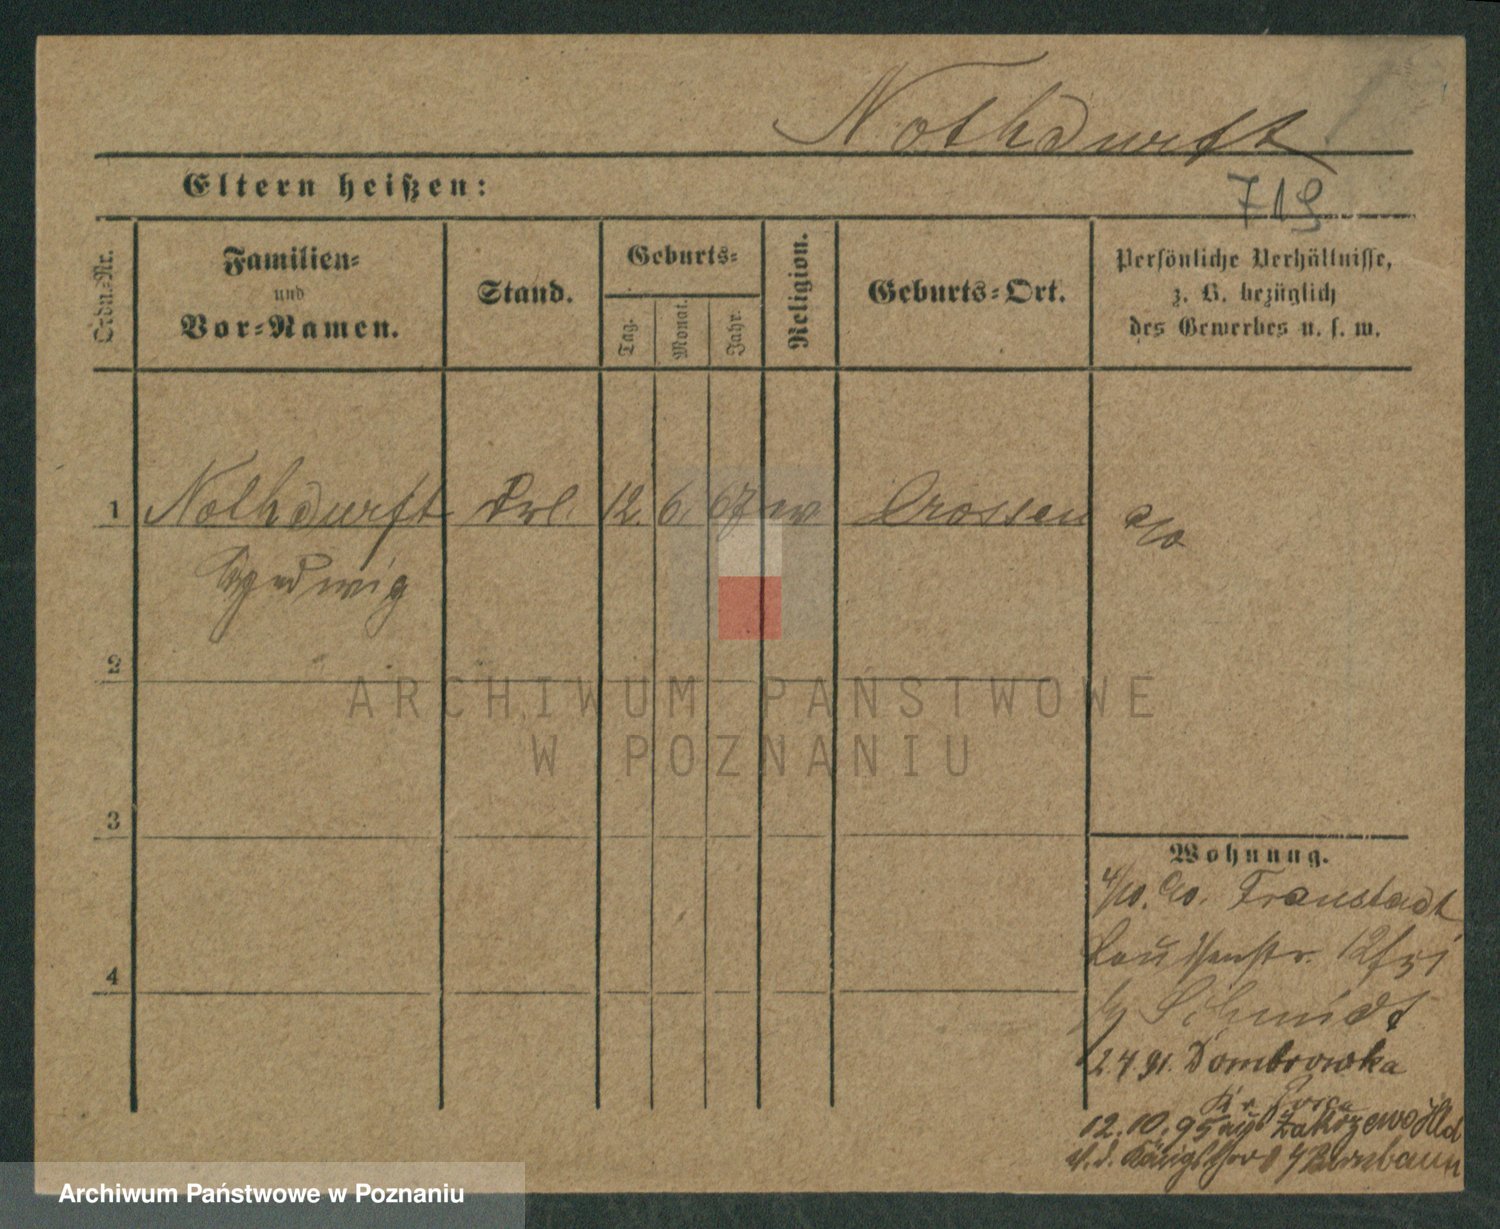 Nothdurft
Eltern heißen:
719
Ordn.-Nr.
Familien-
und
Vor-Namen.
Stand.
Geburts-
Tag.
Monat.
Jahr.
Religion.
Geburts-Ort.
Persönliche Verhältnisse,
z. B. bezüglich
des Gewerbes u. s. w.
1 Nothdurft Frl. 12. 6. 67 ev Crossen a/o
Hedwig
2
3
4
Wohnung.
4/10. 90. Fraustadt
12
b/ Schmidt
2.4.91. Dombrowka
12.10.95 Zakrzewo
Birnbaum
ARCHIWUM PAŃSTWOWE
W POZNANIU
Archiwum Państwowe w Poznaniu